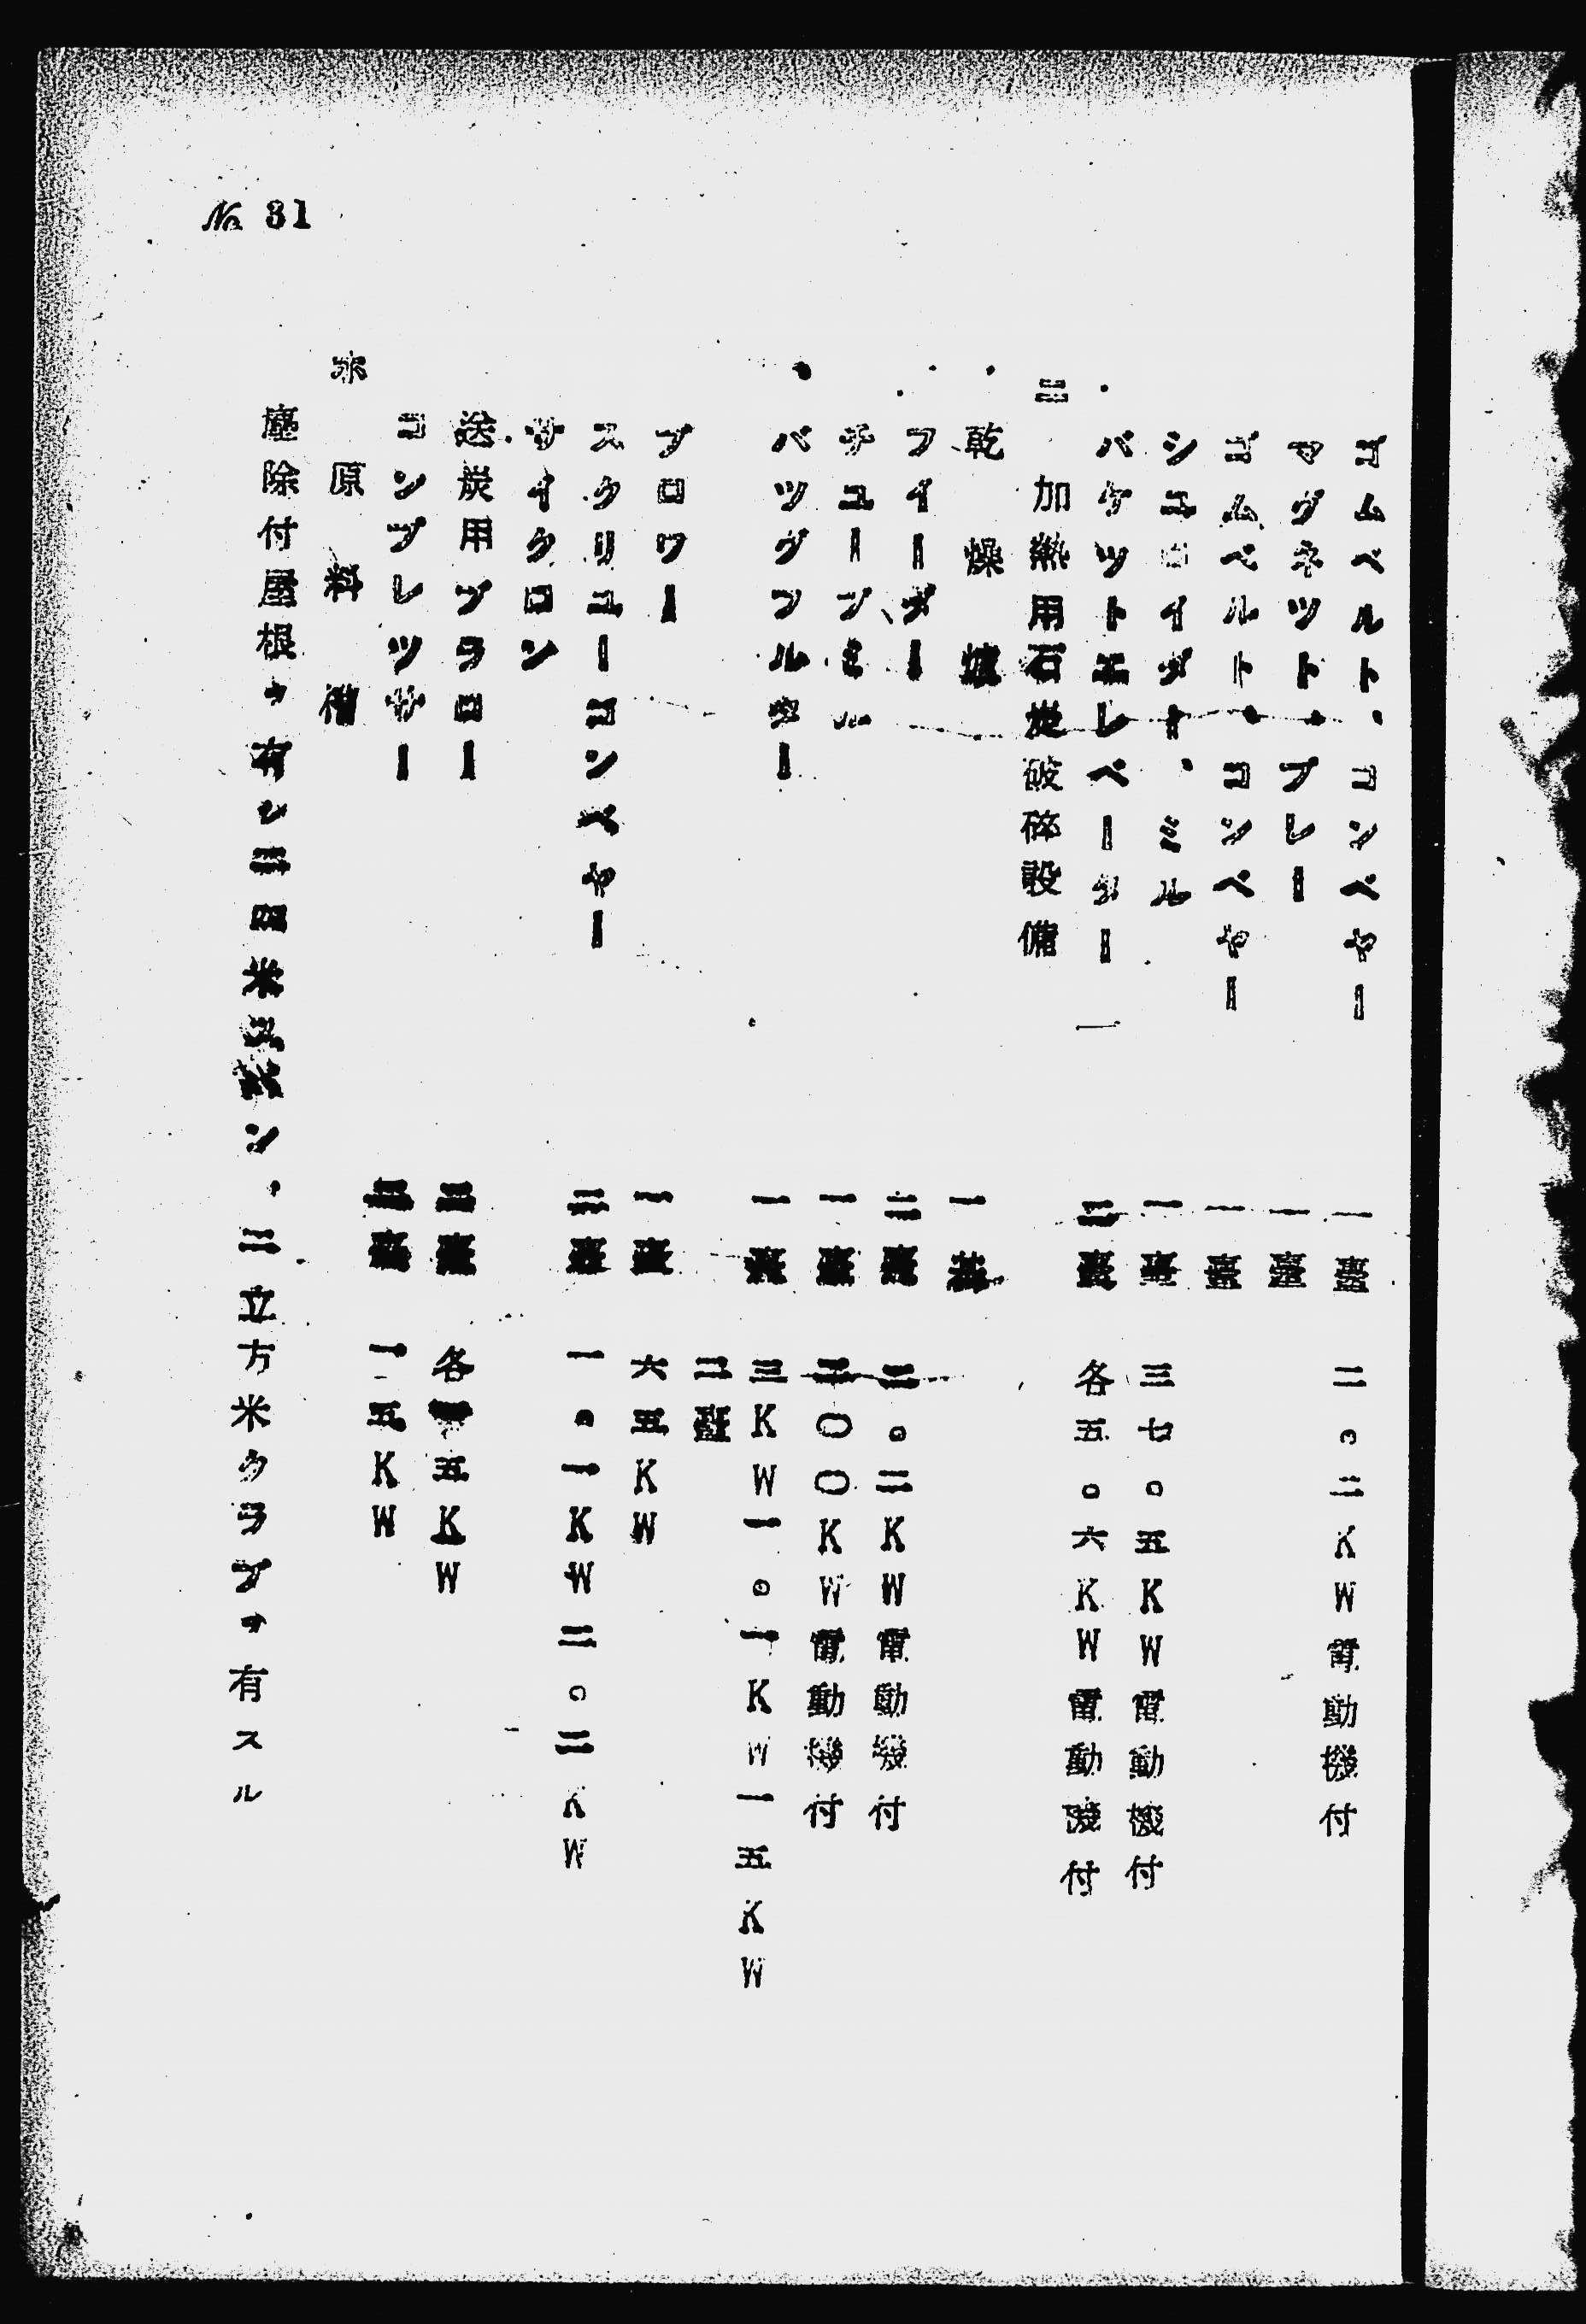 № 31
ゴムベルト、コンベヤー 一臺 二。二KW電動機付
マグネツト、プレー 一臺
ゴムベルト、コンベヤー 一臺
シユロイダー、ミル 一臺 三七。五KW電動機付
バケツトエレベーター 二臺 各五。六KW電動機付
ニ 加熱用石炭破碎設備
乾燥爐 一基
フイーダー 二臺 二。二KW電動機付
チユーブミル 一臺 二〇〇KW電動機付
バツグフルター 一臺 三KW一。一KW一五KW
二臺
ブロワー 一臺 六五KW
スクリユーコンベヤー 二臺 一。一KW二。二KW
サイクロン
送炭用ブラロー 三臺 各 五KW
コンプレツサー 臺 一五KW
ホ 原料槽
塵除付屋根ヲ有シ 四米 、二立方米クラブヲ有スル